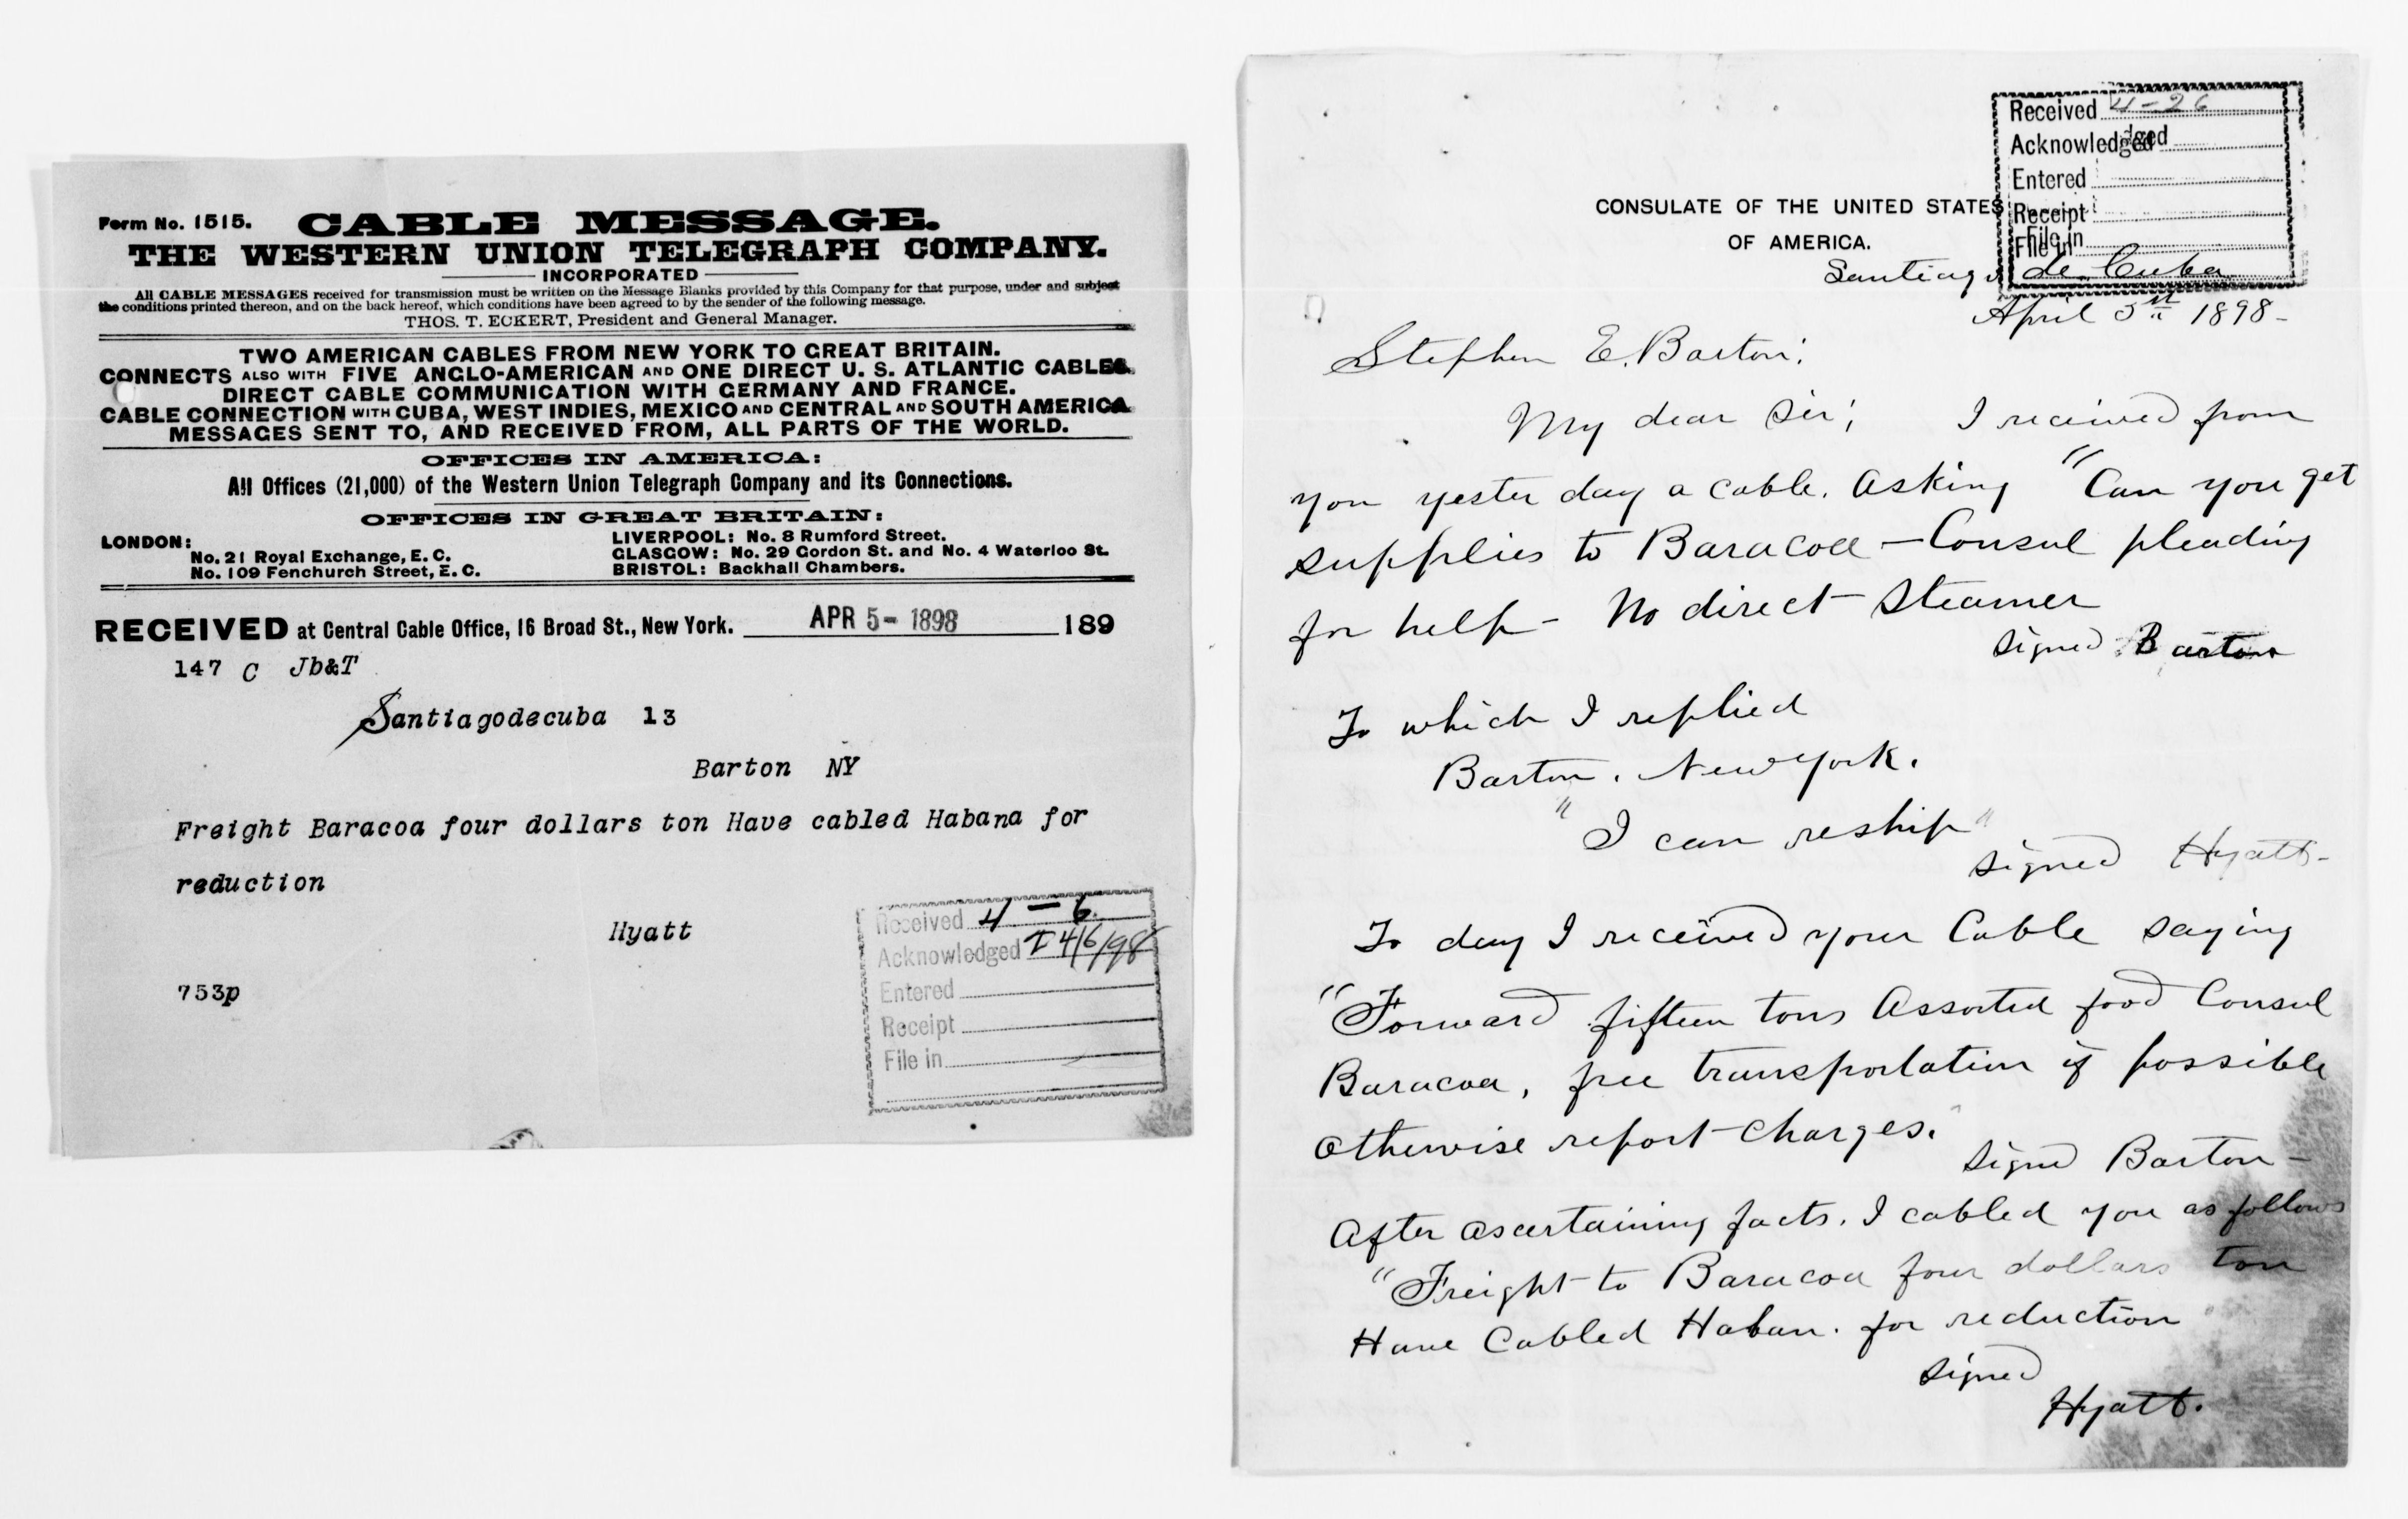 Form No. 1515.
CABLE MESSAGE.
THE WESTERN UNION TELEGRAPH COMPANY.
INCORPORATED
All CABLE MESSAGES received for transmission must be written on the Message Blanks provided by this Company for that purpose, under and subject
the conditions printed thereon, and on the back hereof, which conditions have been agreed to by the sender of the following message.
THOS. T. ECKERT, President and General Manager.
TWO AMERICAN CABLES FROM NEW YORK TO GREAT BRITAIN.
CONNECTS ALSO WITH FIVE ANGLO-AMERICAN AND ONE DIRECT U. S. ATLANTIC CABLES.
DIRECT CABLE COMMUNICATION WITH GERMANY AND FRANCE.
CABLE CONNECTION WITH CUBA, WEST INDIES, MEXICO AND CENTRAL AND SOUTH AMERICA
MESSAGES SENT TO, AND RECEIVED FROM, ALL PARTS OF THE WORLD.
OFFICES IN AMERICA:
All Offices (21,000) of the Western Union Telegraph Company and its Connections.
OFFICES IN GREAT BRITAIN:
LONDON:
No. 21 Royal Exchange, E. C.
No. 109 Fenchurch Street, E. C.
LIVERPOOL: No. 8 Rumford Street.
GLASGOW: No. 29 Gordon St. and No. 4 Waterloo St.
BRISTOL: Backhall Chambers.
RECEIVED at Central Cable Office, 16 Broad St., New York. APR 5- 1898 189
147 C Jb&T
Santiagodecuba 13
Barton NY
Freight Baracoa four dollars ton Have cabled Habana for
reduction
Hyatt
753p
Received 4-6.
Acknowledged I 4/6/98
Entered
Receipt
File in
Received 4-26
Acknowledged
Entered
Receipt
File in
CONSULATE OF THE UNITED STATES
OF AMERICA.
Santiago de Cuba
April 5th 1898-
Stephen E. Barton:
My dear Sir; I received from
you yester day a cable. Asking "Can you get
supplies to Baracoa - Consul pleading
for help - No direct Steamer
signed Barton
To which I replied
Barton. New York.
"I can reship"
signed Hyatt-
To day I received your Cable saying
"Forward fifteen tons Assorted food Consul
Baracoa, free transportation if possible
otherwise report charges."
signed Barton-
After ascertaining facts. I cabled you as follows
"Freight to Baracoa four dollars ton
Have Cabled Haban. for reduction
signed
Hyatt.